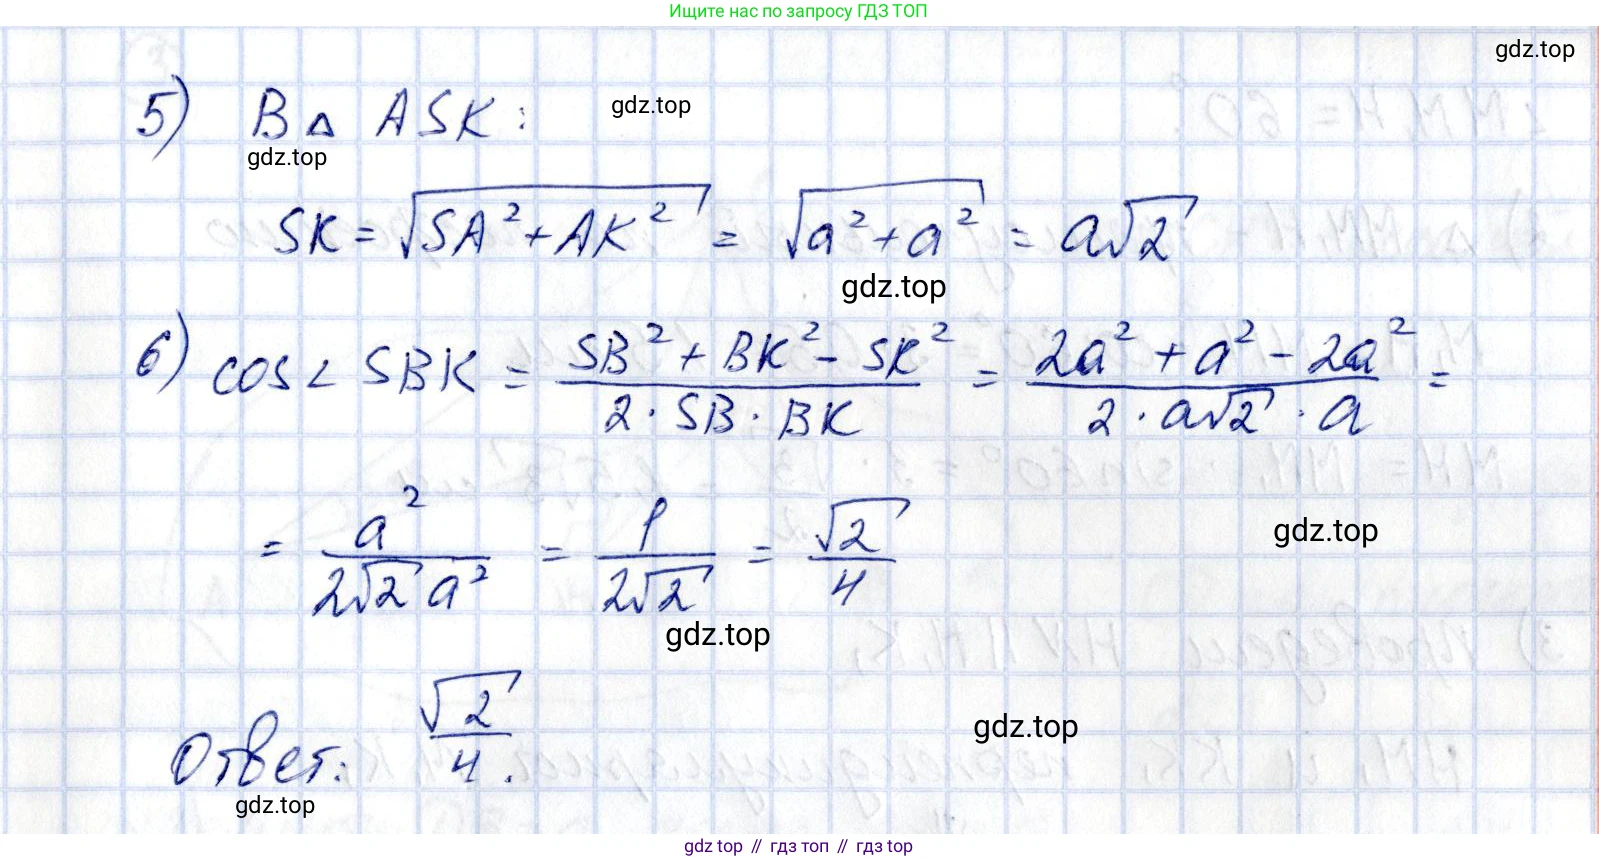 Ищите нас по запросу ГДЗ ТОП
gdz.top
5) В △ ASK:
gdz.top
gdz.top
SK = √(SA² + AK²) = √(a² + a²) = a√2
gdz.top
6) cos∠SBK = (SB² + BK² - SK²)/(2 · SB · BK) = (2a² + a² - 2a²)/(2 · a√2 · a) =
= a²/(2√2 a²) = 1/(2√2) = √2/4
gdz.top
gdz.top
Ответ: √2/4.
gdz.top
gdz.top
gdz.top // гдз топ // гдз top